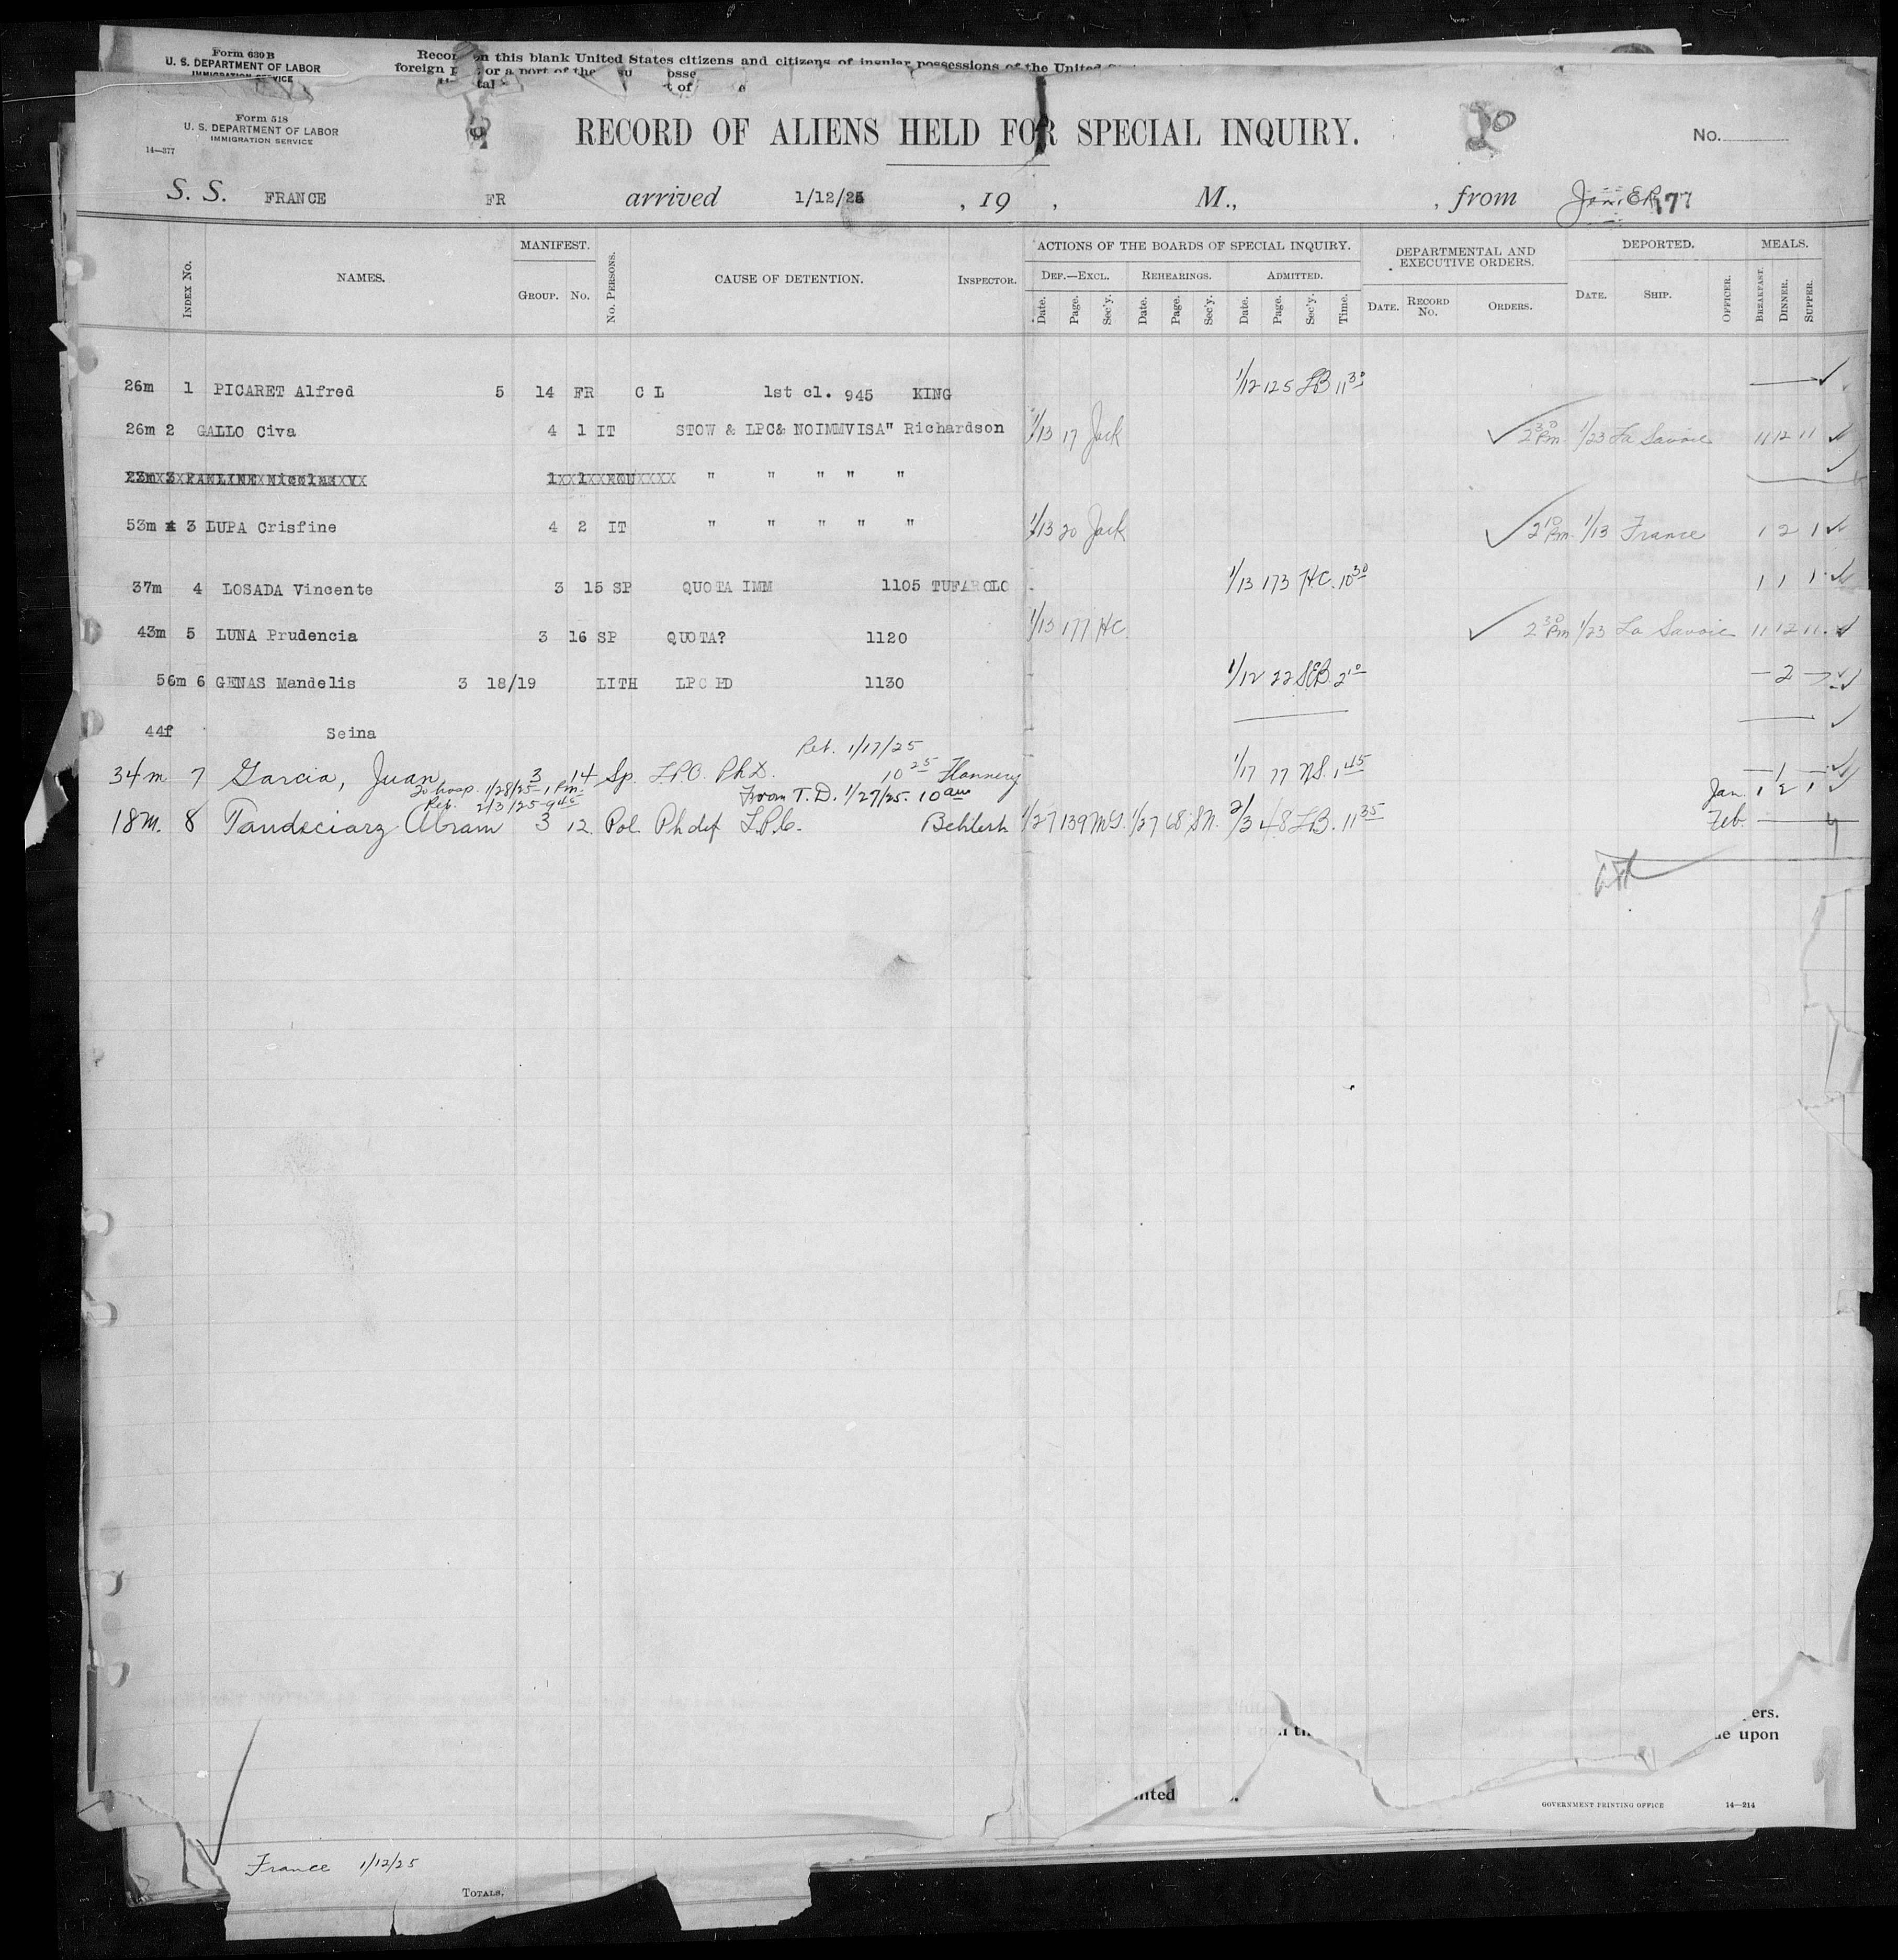 Form 630 B
U. S. DEPARTMENT OF LABOR
IMMIGRATION SERVICE
on this blank United States citizens and citizens of insular possessions of the United
foreign or a port of the
Form 518
U. S. DEPARTMENT OF LABOR
IMMIGRATION SERVICE
14—377
RECORD OF ALIENS HELD FOR SPECIAL INQUIRY.
20
No.
S. S. FRANCE FR arrived 1/12/25 , 19 , M., , from 177
INDEX No. NAMES. MANIFEST. GROUP. No. No. PERSONS. CAUSE OF DETENTION. INSPECTOR. ACTIONS OF THE BOARDS OF SPECIAL INQUIRY. DEF.—EXCL. Date. Page. Sec'y. REHEARINGS. Date. Page. Sec'y. ADMITTED. Date. Page. Sec'y. Time. DEPARTMENTAL AND EXECUTIVE ORDERS. DATE. RECORD No. ORDERS. DEPORTED. DATE. SHIP. OFFICER. MEALS. BREAKFAST. DINNER. SUPPER.
26m 1 PICARET Alfred 5 14 FR C L 1st cl. 945 KING 1/12 125 LB 11 30
26m 2 GALLO Civa 4 1 IT STOW & LPC& NOIMMVISA" Richardson 1/13 17 Jack 2 30 Pm. 1/23 La Savoie 11 12 11
23m 3 PAULINE Nicolas V 1 1 " " " " "
53m 3 LUPA Crisfine 4 2 IT " " " " " 1/13 20 Jack 2 10 Pm. 1/13 France 1 2 1
37m 4 LOSADA Vincente 3 15 SP QUOTA IMM 1105 TUFAROLO 1/13 173 H.C. 10 30 1 1 1
43m 5 LUNA Prudencia 3 16 SP QUOTA? 1120 1/13 177 HC. 2 30 Pm 1/23 La Savoie 11 12 11
56m 6 GENAS Mandelis 3 18/19 LITH LPC HD 1130 1/12 22 SEB. 2 10 2
44f Seina
Ret. 1/17/25
34m 7 Garcia, Juan 3 14 Sp. L.P.C. Ph.D. 10 25 Flannery 1/17 77 N.S. 1 45 1
To hosp. 1/28/25-1 Pm. From T. D. 1/27/25. 10 am Jan. 1 2 1
Ret. 2/3/25-9 40
18m. 8 Tandeciarz Abram 3 12 Pol. Ph def L.P.C. 1/27 139 M.G. 1/27 68 SN. 2/3 48 LB. 11 35 Feb.
ers.
upon
GOVERNMENT PRINTING OFFICE 14—214
France 1/12/25
TOTALS.